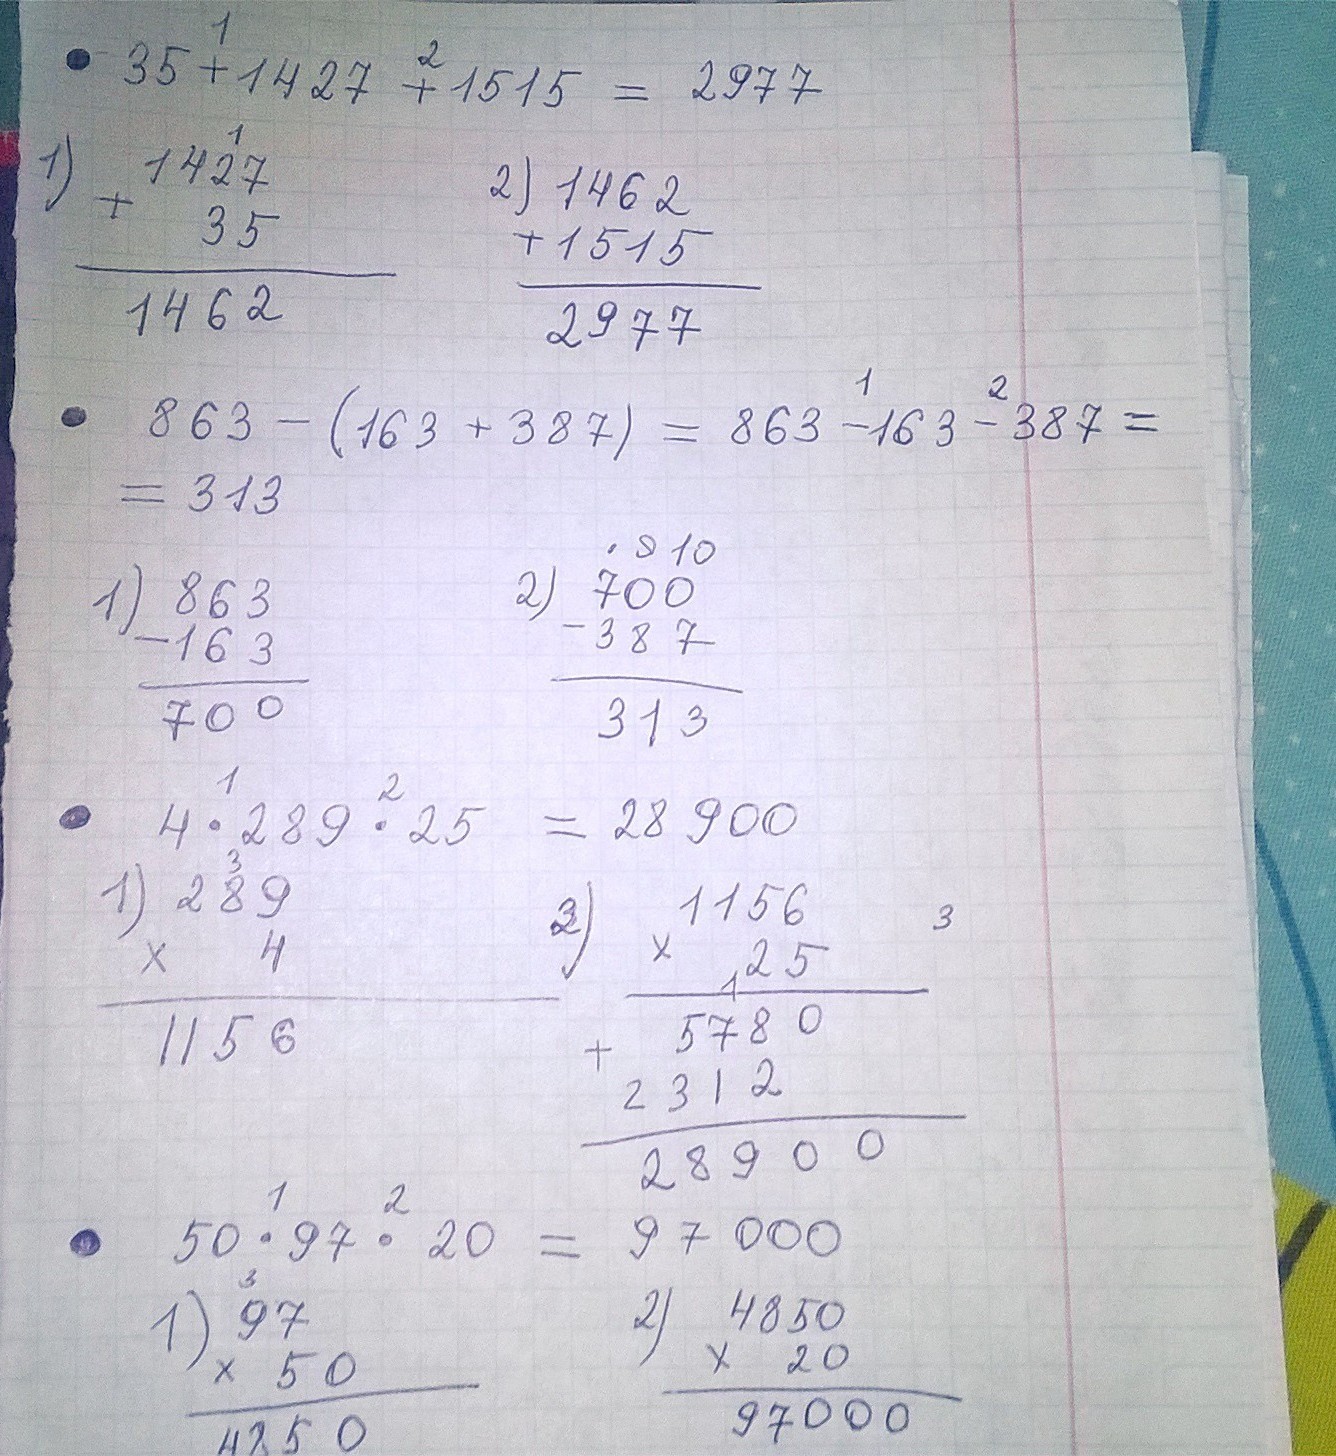 • 35 + 1427 + 1515 = 2977
1 2
1) 1427 + 35 = 1462
1
2) 1462 + 1515 = 2977
• 863 - (163 + 387) = 863 - 163 - 387 =
1 2
= 313
1) 863 - 163 = 700
2) 700 - 387 = 313
. 9 10
• 4 · 289 · 25 = 28 900
1 2
1) 289
3
x 4
1156
2) 1156 3
x 25
1
5780
+ 2312
28900
• 50 · 97 · 20 = 97 000
1 2
1) 97
3
x 50
4850
2) 4850
x 20
97000